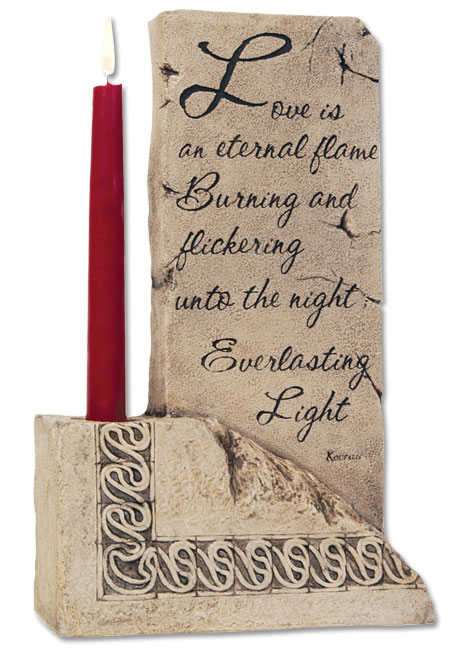 Love is
an eternal flame
Burning and
flickering
unto the night;
Everlasting
Light